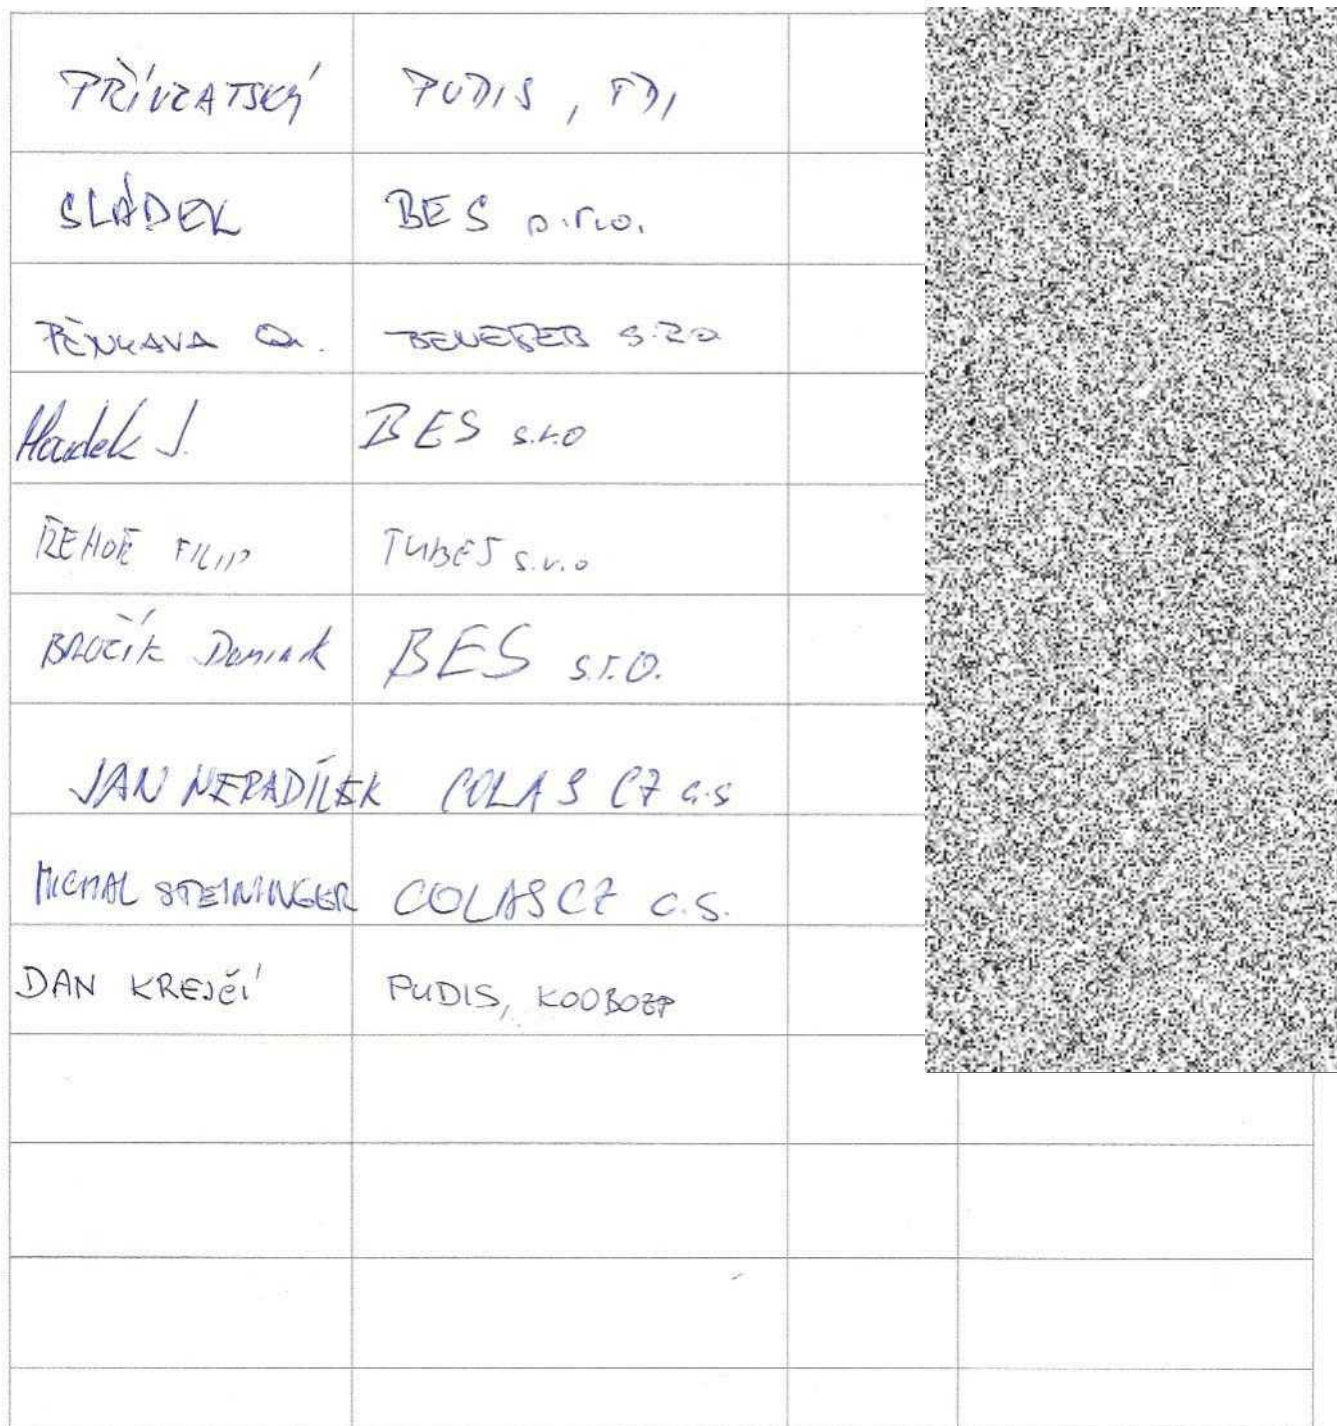 PŘÍVRATSKÝ PUDIS, TDI
SLÁDEK BES s.r.o.
PĚNKAVA BENEPER S.R.O.
Hladek J. BES s.r.o
ŘEHOŘ FILIP TUBES s.r.o
Dominik BES s.r.o.
JAN NEPADÍLEK COLAS CZ a.s
MICHAL STEININGER COLAS CZ a.s.
DAN KREJČÍ PUDIS, KOOBOZP